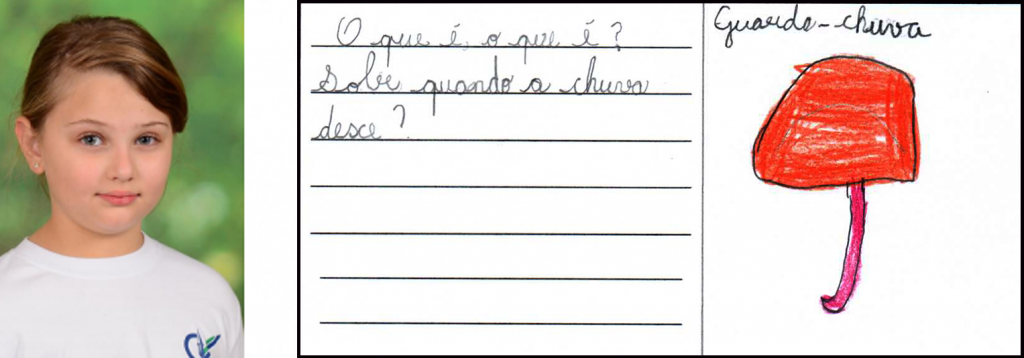 O que é, o que é?
Sobe quando a chuva
desce?
Guarda-chuva